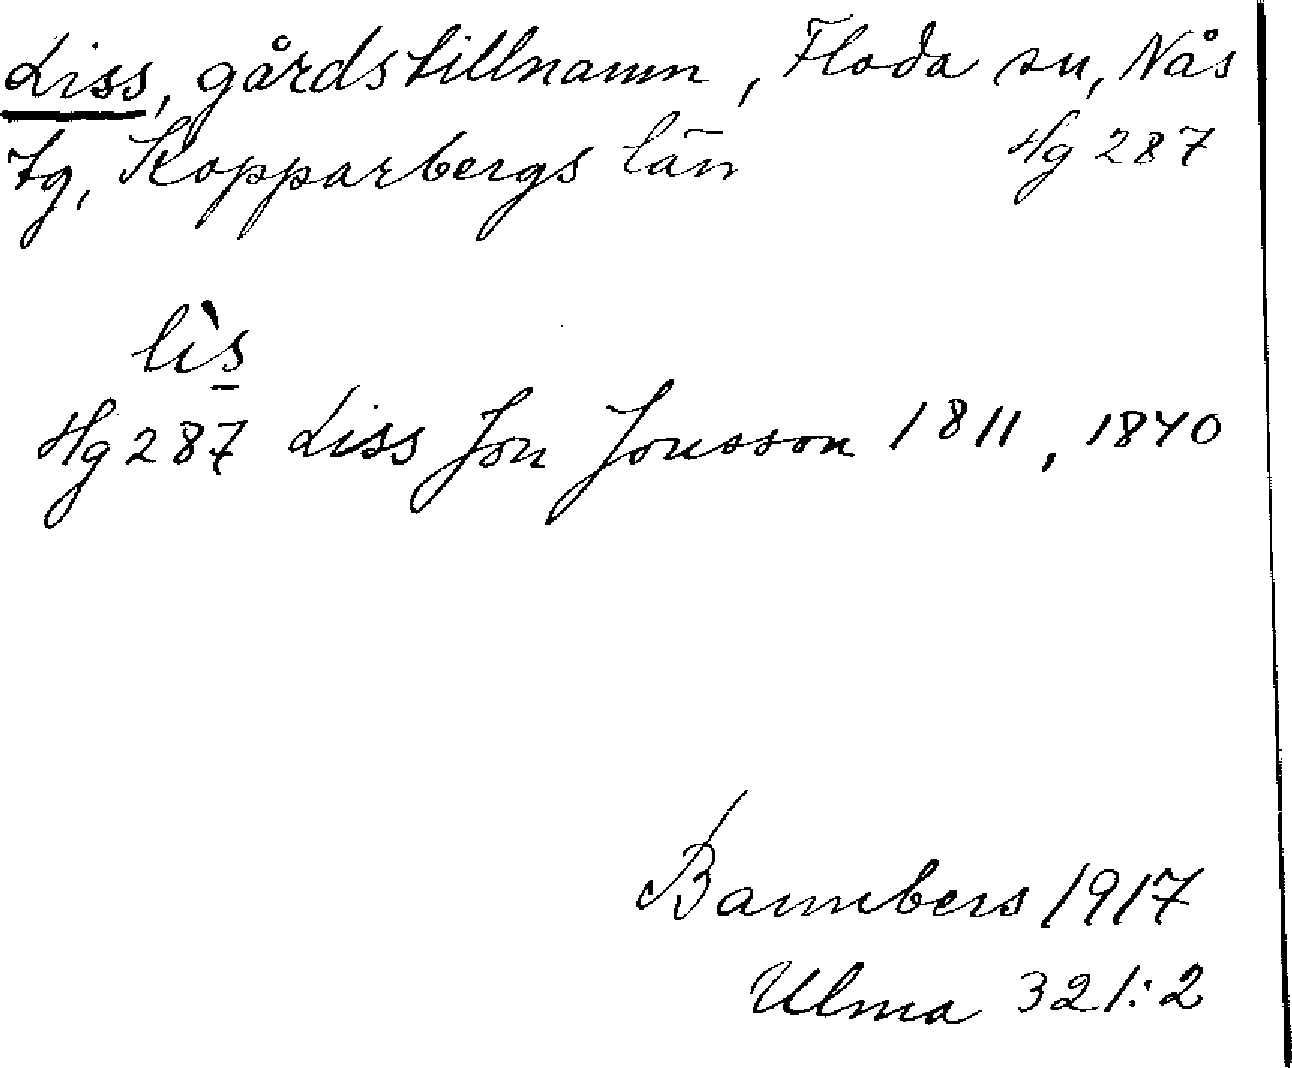 Liss, gårdstillnamn, Floda sn, Nås
tg, Kopparbergs län Hg 287
lìs
Hg 287 Liss Jon Jonsson 1811, 1840
Bannbers 1917
Ulma 321:2